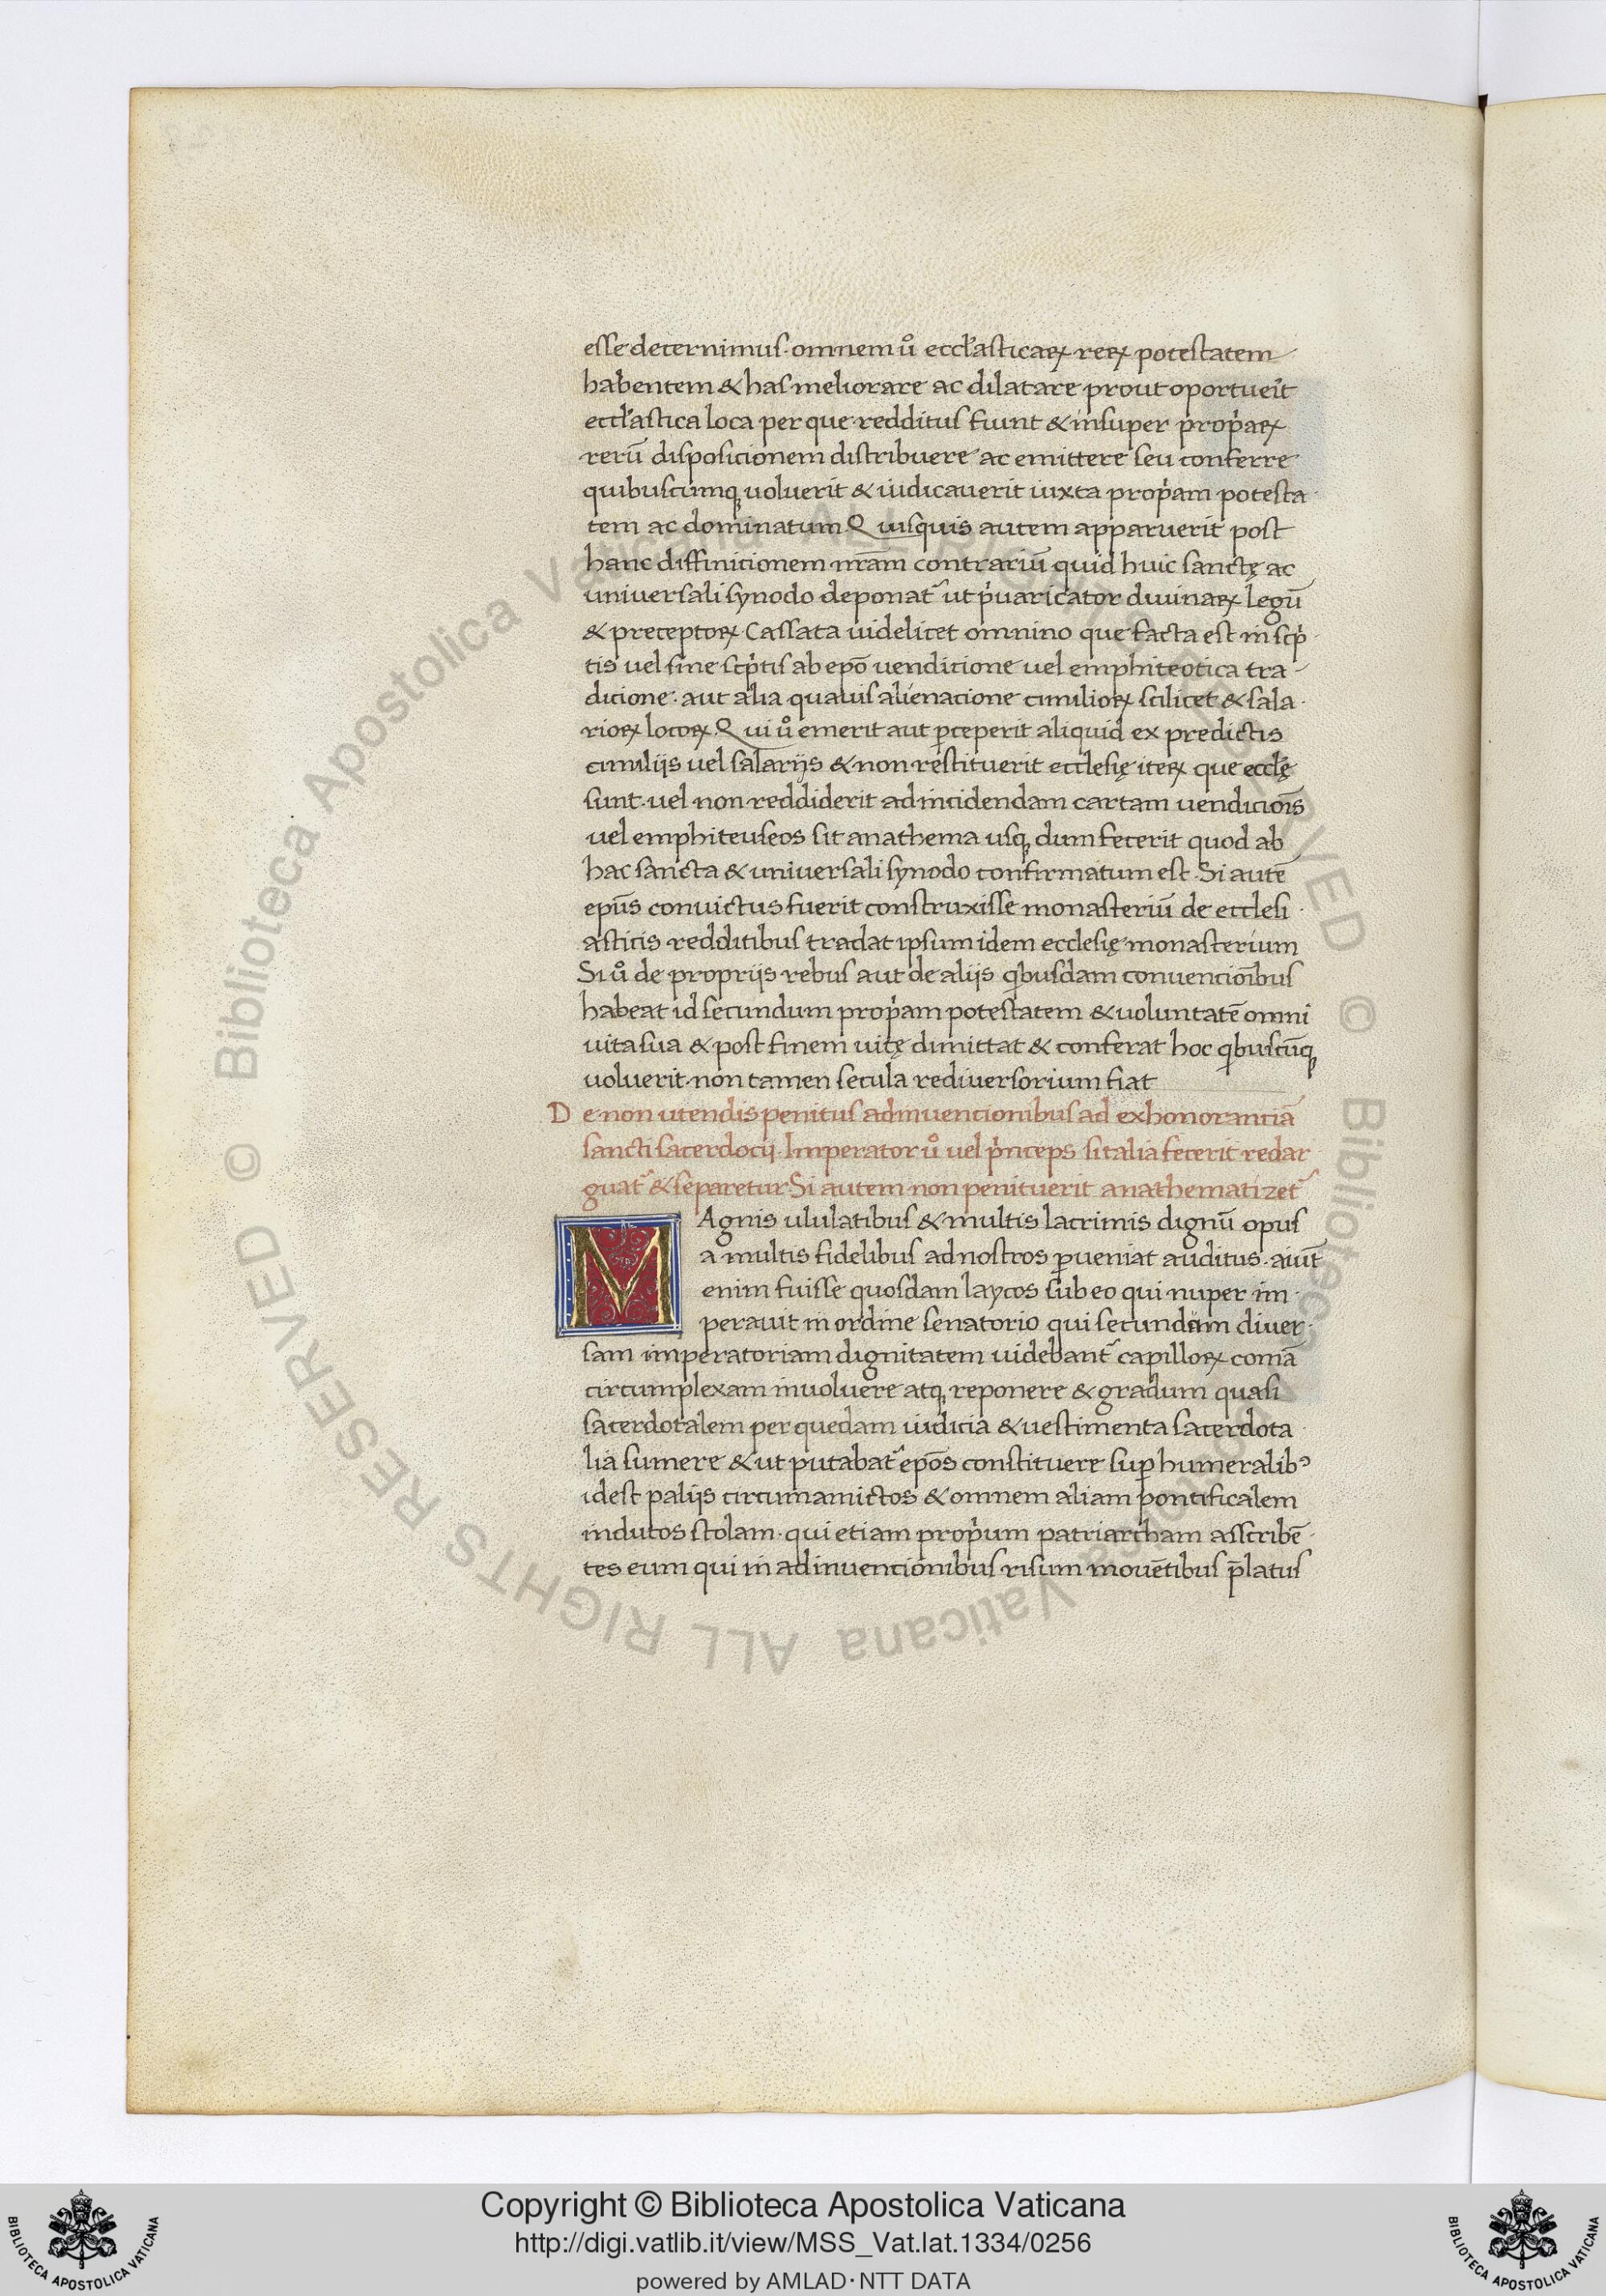 esse decernimus. omnem u͛o eccl̄asticaꝝ reꝝ potestatem
habentem & has meliorare ac dilatare prout oportuerit
eccl̄astica loca per que redditus fiunt & insuper prop̄aꝝ
rerū disposicionem distribuere ac emittere seu conferre
quibuscumqꝫ uoluerit & iudicauerit iuxta prop̄am potesta
tem ac dominatum Quisquis autem apparuerit post
hanc diffinicionem nr̄am contrariū quid huic sanctę ac
uniuersali synodo deponat᷑ ut p̄uaricator diuinaꝝ legū
& preceptoꝝ. Cassata uidelicet omnino que facta est in scp̄
tis uel sine scp̄tis ab ep̄o uendicione uel emphiteotica tra-
dicione. aut alia quauis alienacione cimilioꝝ scilicet & sala
rioꝝ locoꝝ. Qui u͛o emerit aut ꝑceperit aliquid ex predictis
cimilijs uel salarijs & non restituerit ecclesię iteꝝ que eccl̄ę
sunt. uel non reddiderit ad incidendam cartam uendiciōis
uel emphiteuseos sit anathema usqꝫ dum fecerit quod ab
hac sancta & uniuersali synodo confirmatum est. Si autē
ep̄us conuictus fuerit construxisse monasteriū de ecclesi
asticis redditibus tradat ipsum idem ecclesię monasterium
Si u͛o de proprijs rebus aut de alijs qͥbusdam conuencionībus
habeat id secundum prop̄am potestatem & uoluntatē omni
uita sua & post finem uitę dimittat & conferat hoc qͥbuscūqꝫ
uoluerit. non tamen secula rediuersorium fiat
De non utendis penitus adinuencionibus ad exhonoranciā
sancti sacerdocij. Imperator u͛o uel p̄nceps si talia fecerit redar
guat᷑ & separetur Si autem non penituerit anathematizet᷑
MAgnis ululatibus & multis lacrimis dignū opus
a multis fidelibus ad nostros ꝑueniat auditus. aiūt
enim fuisse quosdam laycos sub eo qui nuper im
perauit in ordine senatorio qui secundum diuer
sam imperatoriam dignitatem uidebant᷑ capilloꝝ comā
circumplexam inuoluere atqꝫ reponere & gradum quasi
sacerdotalem per quedam iudicia & uestimenta sacerdota
lia sumere & ut putabat᷑ ep̄os constituere suꝑhumeralibꝰ
idest palijs circumamictos & omnem aliam pontificalem
indutos stolam. qui etiam prop̄um patriarcham asscribē
tes eum qui in adinuencionibus risum mouētibus p̄latus
© Biblioteca Apostolica Vaticana ALL RIGHTS RESERVED © Biblioteca Apostolica Vaticana ALL RIGHTS RESERVED
Copyright © Biblioteca Apostolica Vaticana
http://digi.vatlib.it/view/MSS_Vat.lat.1334/0256
powered by AMLAD·NTT DATA
BIBLIOTECA APOSTOLICA VATICANA
BIBLIOTECA APOSTOLICA VATICANA